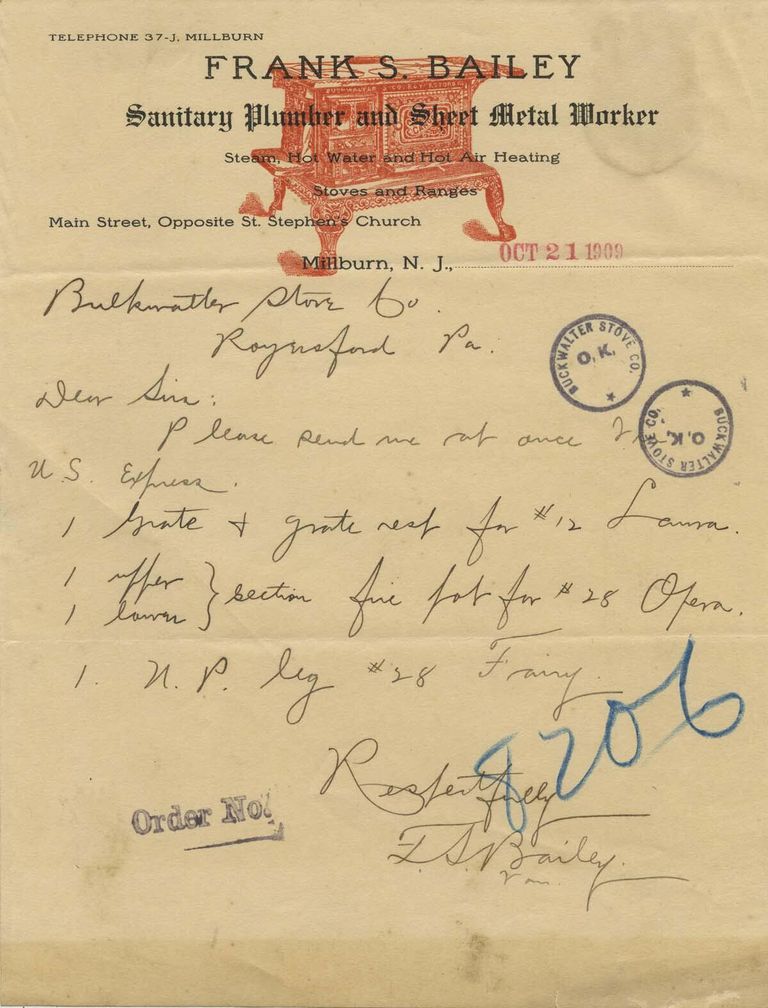 TELEPHONE 37-J, MILLBURN
FRANK S. BAILEY
BUCKWALTER
Sanitary Plumber and Sheet Metal Worker
Steam, Hot Water and Hot Air Heating
Stoves and Ranges
Main Street, Opposite St. Stephen's Church
Millburn, N. J., OCT 21 1909
Bulkwatter Stove Co.
Royersford Pa.
BUCKWALTER STOVE CO.
O.K.
Dear Sirs:
BUCKWALTER STOVE CO.
O.K.
Please send me at once
U.S. Express.
1 Grate & grate rest for #12 Laura.
1 upper
1 lower } section fire pot for #28 Opera.
1. N.P. leg #28 Fairy.
8206
Respectfully
Order No.
F.S. Bailey.